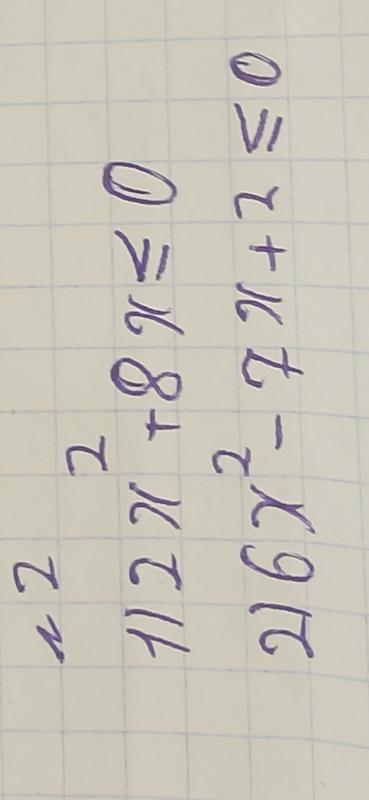 № 2
1) 2x² + 8x ≤ 0
2) 6x² - 7x + 2 ≤ 0